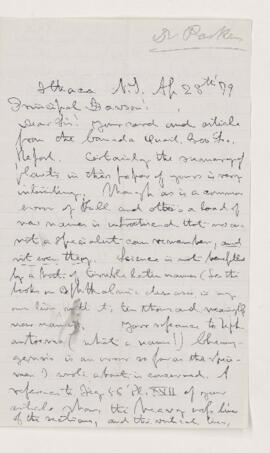 Dr Parker
Ithaca N.Y. Ap 28th 79
Principal Dawson!
Dear Sir! Your card and article
from the Canada Quart. Geo Soc.
Report. Certainly the summary of
plants in this paper of yours is very
interesting. Though as is a common
error of Hall and others a load of
new names is introduced that no one
not a specialist can remember, and
not even they. Science is not benefited
by a host of terrible latin names (See the
books on Ophthalmic diseases in my
own line, with it, ten thousand
new names. Your reference to
what a name!)
is an error so far as the speci-
men I wrote about is concerned. A
reference to Fig 86 Pl. XXII of your
article shows the heavy
of the sections, and the vertical lines,